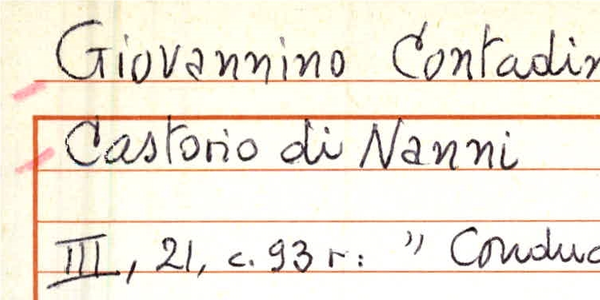 Giovannino Contadin
Castorio di Nanni
III, 21, c. 93 r: " Conduc